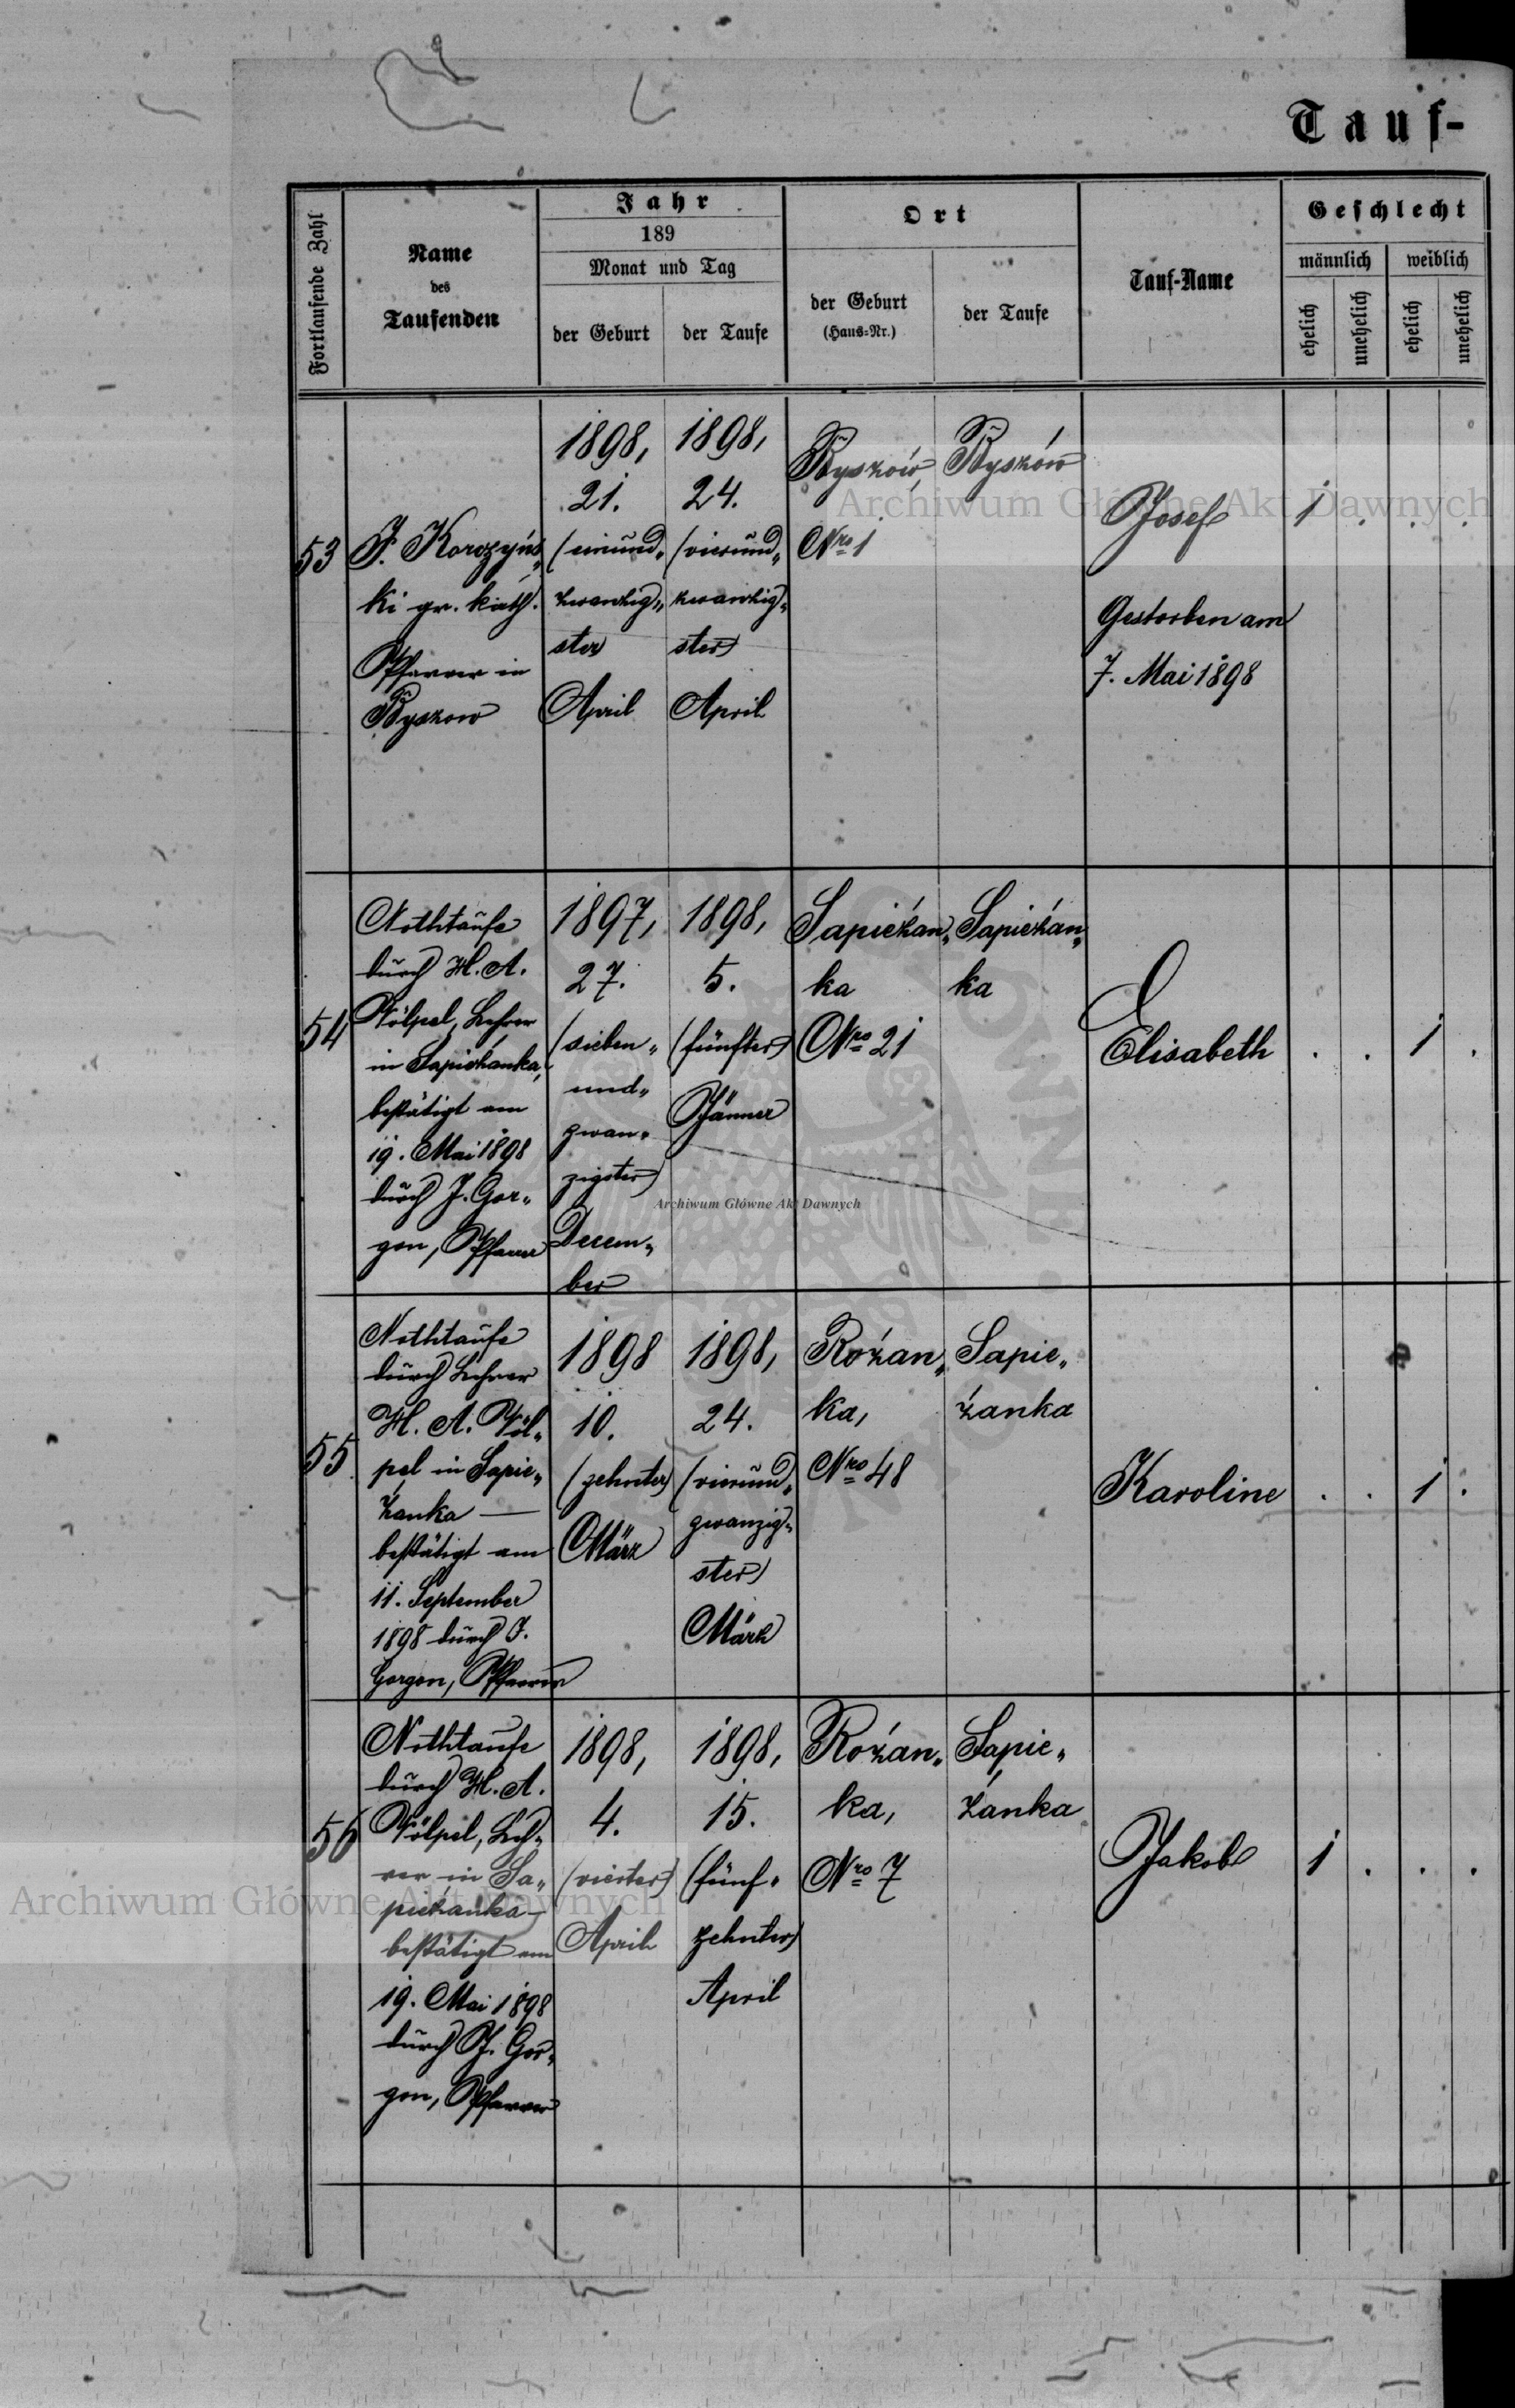 Tauf-
Fortlaufende Zahl
Name
des
Taufenden
Jahr
189
Monat und Tag
der Geburt
der Taufe
Ort
der Geburt
(Haus-Nr.)
der Taufe
Tauf-Name
Geschlecht
männlich
weiblich
ehelich
unehelich
ehelich
unehelich
53
J. Korczyńs„
ki gr. kath.
Pfarrer in
Byszow
1898,
21.
(einund„
zwanzig„
ster)
April
1898,
24.
(vierund„
zwanzig„
ster)
April
Byszów,
Nro 1
Byszów
Josef
Gestorben am
7. Mai 1898
1 . . .
54
Nothtaufe
durch H. A.
Völpel, Lehrer
in Sapieżanka,
bestätigt am
19. Mai 1898
durch J. Gor„
gon, Pfarrer
1897,
27.
(sieben„
und„
zwan„
zigster)
Decem„
ber
1898,
5.
(fünfter)
Jänner
Sapieżan„
ka
Nro 21
Sapieżan„
ka
Elisabeth
. . 1 .
55
Nothtaufe
durch Lehrer
H. A. Völ„
pel in Sapie„
żanka —
bestätigt am
11. September
1898 durch J.
Gorgon, Pfarrer
1898
10.
(zehnter)
März
1898,
24.
(vierund„
zwanzig„
ster)
März
Rożan„
ka,
Nro 48
Sapie„
żanka
Karoline
. . 1 .
56
Nothtaufe
durch H. A.
Völpel, Leh„
rer in Sa„
pieżanka —
bestätigt am
19. Mai 1898
durch J. Gor„
gon, Pfarrer
1898,
4.
(vierter)
April
1898,
15.
(fünf„
zehnter)
April
Rożan„
ka,
Nro 7
Sapie„
żanka
Jakob
1 . . .
Archiwum Główne Akt Dawnych
Archiwum Główne Akt Dawnych
Archiwum Główne Akt Dawnych